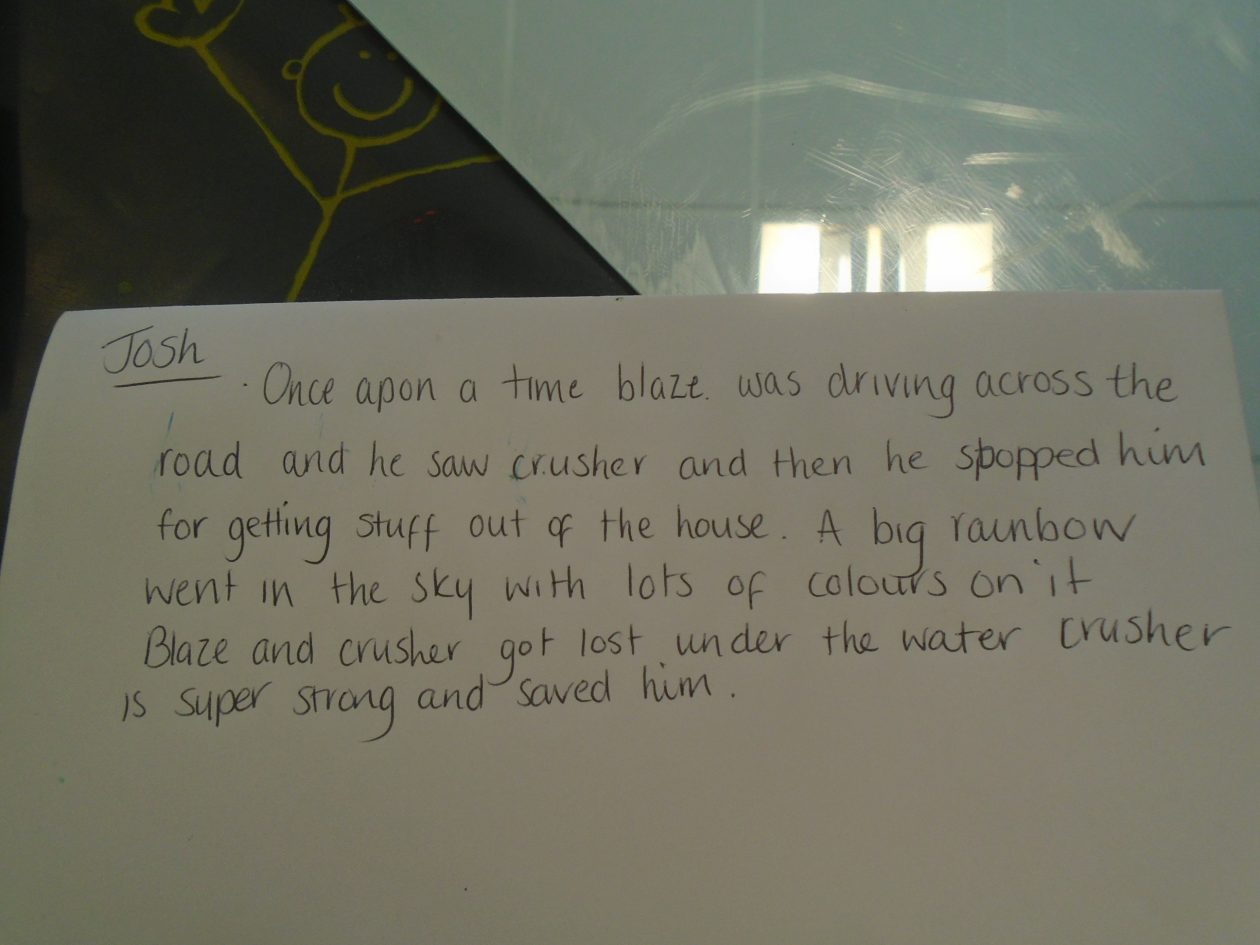 Josh
. Once apon a time blaze. was driving across the
road and he saw crusher and then he spopped him
for getting stuff out of the house. A big rainbow
went in the sky with lots of colours on it
Blaze and crusher got lost under the water crusher
is super strong and saved him.